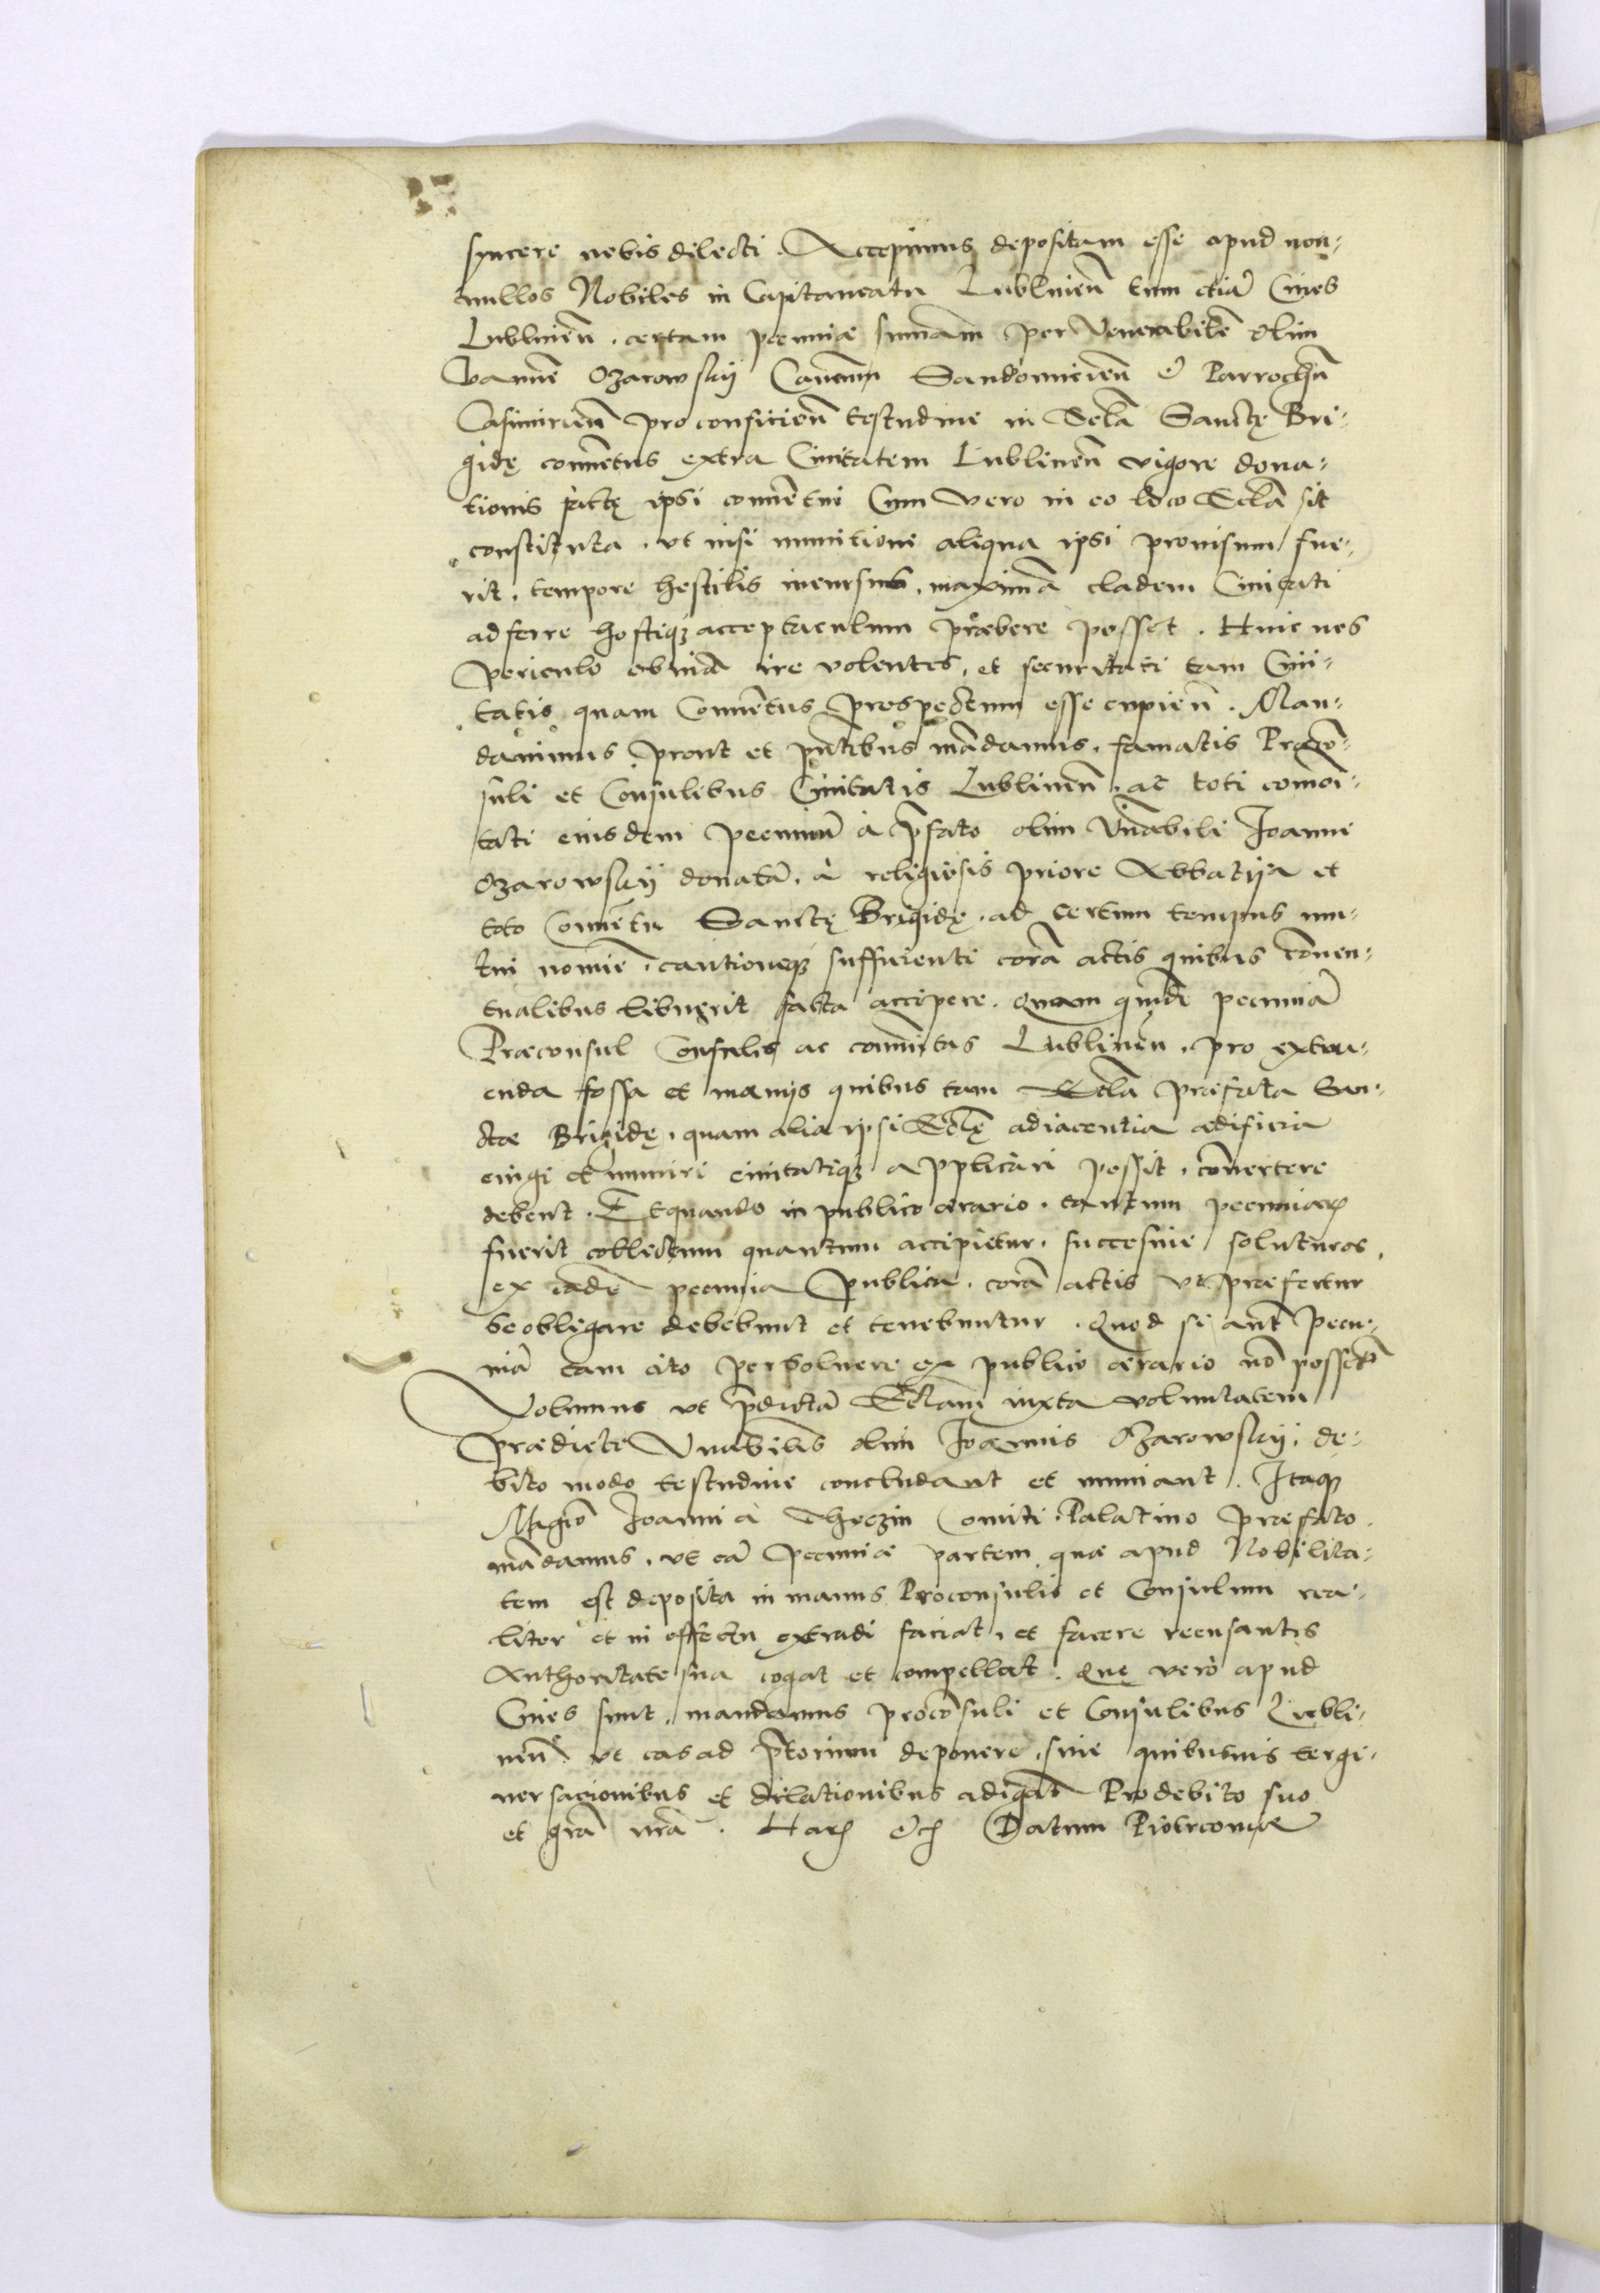 syncere nobis dilecti. Accepimus depositam esse apud non-
nullos Nobiles in Capitaneatu Lublinen̄ tum etiā Ciues
Lublinen̄. certam pecuniæ sum̄am per Venerabilē olim
Ioannē Ozarowskij Canonm̄ Sandomirien̄ et Parrochū
Casimirien̄ pro conficien̄ testudine in Eclā Sanctę Bri-
gidę conuētus extra Ciuitatem Lublinen̄ vigore dona-
tionis factę ipsi conuētui Cum vero in eo loco Eclā sit
constituta. vt nisi munitioni aliqua ipsi prouisum fue-
rit. tempore hostilis incursus, maximā cladem Ciuitati
adferre hostiq3 acceptaculum præbere posset. Huic nos
periculo obuiā ire volentes, et securitati tam Ciui-
tatis quam Conuētus prospectum esse cupien̄. Man-
dauimus prout et pn̄tibus mādamus. famatis Procō-
suli et Consulibus Ciuitatis Lublinen̄. ac toti com̄oi-
tati eiusdem pecuniā à p̄fato olim Vn̄abili Ioanni
Ozarowskij donatā. à religiosis priore Abbatissa et
toto Conuētu Sanctę Brigidę. ad certum tempus mu-
tui nomiē. cautioneq3 sufficienti corā actis quibus conuen-
tualibus libuerit facta accipere. Quam quidē pecuniā
Præconsul Consules ac com̄unitas Lublinen̄. pro extru-
enda fossa et mæniis quibus tam Eclā præfata San-
ctæ Brigidę. quam alia ipsi Eclę adiacentia ædificia
cingi et muniri ciuitatiq3 applicari possit. conuertere
debent. Et quando in publico ærario. tantum pecuniæ
fuerit collectum quantum accipietur. succesiue soluturos
ex eadē pecunia publica. corā actis vt præfertur
se obligare debebunt et tenebuntur. Quod si aut̄ pecu-
niā eam cito persoluere ex publico ærario nō possent
Volumus vt p̄dictā Eclam iuxta voluntatem
prædicti Vn̄abilis olim Ioannis Ozarowskij. de-
bito modo testudine concludant et muniant. Itaq3
Maḡco Ioanni à Thęczin Comiti. Palatino præfato.
mādamus. vt eā pecuniæ partem quæ apud Nobilita-
tem est deposita in manus Proconsulis et Consulum rea-
liter et in effectu extradi faciat. et facere recusantes
Authoritate sua cogat et compellat. Quę verò apud
Ciues sunt. mandamus procōsuli et Consulibus Lubli-
nen̄. vt eas ad p̄torium deponere. sine quibusuis tergi-
uersacionibus et dilationibus adigāt Pro debito suo
et gr̄a nr̄a. Harū etc̄ Datum Piotrcouiæ